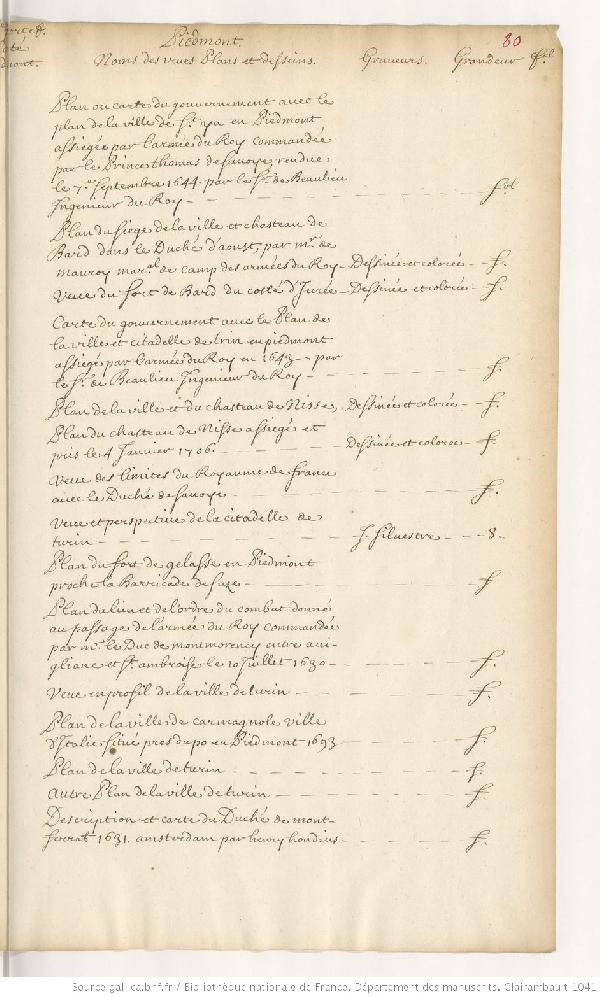 Piedmont.
80
Noms des vues Plans et desseins. Graveurs. Grandeur
Plan ou carte du gouvernement avec le
plan de la ville de St. ya en Piedmont
assiegée par l'armée du Roy commandée
par le Prince thomas de Savoye, rendue
le 7. Septembre 1644. par le Sr. de Beaulieu
Ingenieur du Roy - fol
Plan du siege de la ville et chasteau de
Bard dans le Duché d'aoust, par mr. de
mauroy maral. de camp des armées du Roy - Dessinée et coloriée - f.
Veue du fort de Bard du costé d'Jvrée - Dessinée et coloriée - f.
Carte du gouvernement avec le Plan de
la ville et citadelle de trin en piedmont
assiegé par l'armée du Roy en 1643 - par
le Sr. de Beaulieu Ingenieur du Roy - f.
Plan de la ville et du chasteau de Nisse, Dessinée et colorée - f.
Plan du chasteau de Nisse assiegé et
pris le 4 Janvier 1706. - Dessinée et colorée - f.
Veue des limites du Royaume de france
avec le Duché de Savoye - f.
Veue et perspective de la citadelle de
turin - J. Silvestre - 8.
Plan du fort de gelasse en Piedmont
proche la Barricade de suze - f
Plan du lieu et de l'ordre du combat donné
au passage de l'armée du Roy commandée
par mr. le Duc de montmorency entre avi-
gliane et St. ambroise le 10 Juillet 1630 - f.
Veue en profil de la ville de turin - f.
Plan de la ville de carmagnole ville
d'Italie situé pres du po en Piedmont 1693 - f.
Plan de la ville de turin - f.
autre Plan de la ville de turin - f.
Description et carte du Duché de mont-
ferrat 1631. amsterdam par henry hondius - f.
Source gallica.bnf.fr / Bibliothèque nationale de France. Département des manuscrits. Clairambault 1041